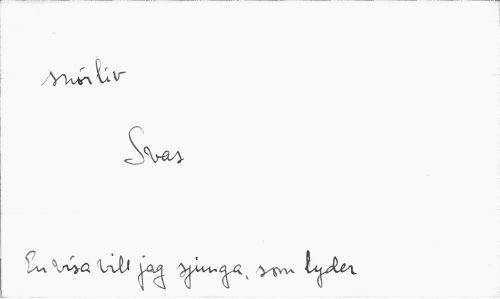 snörliv
Svas
En visa vill jag sjunga, som lyder